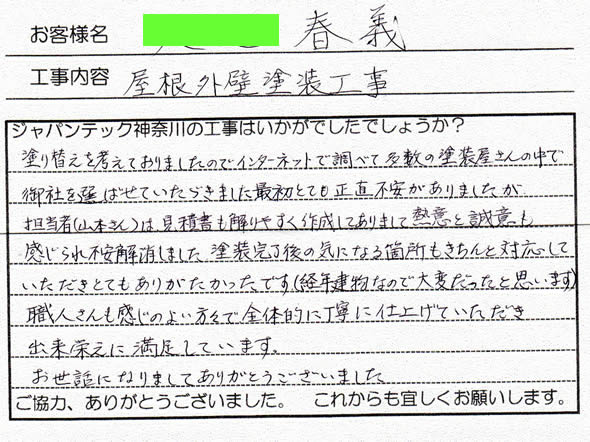 お客様名 春義
工事内容 屋根外壁塗装工事
ジャパンテック神奈川の工事はいかがでしたでしょうか？
塗り替えを考えておりましたのでインターネットで調べて多数の塗装屋さんの中で
御社を選ばせていただきました最初とても正直不安がありましたが
担当者(山本さん)は見積書も解りやすく作成してありまして熱意と誠意も
感じられ不安解消しました 塗装完了後の気になる箇所もきちんと対応して
いただきとてもありがたかったです(経年建物なので大変だったと思います)
職人さんも感じのよい方々で全体的に丁寧に仕上げていただき
出来栄えに満足しています。
お世話になりましてありがとうございました
ご協力、ありがとうございました。 これからも宜しくお願いします。